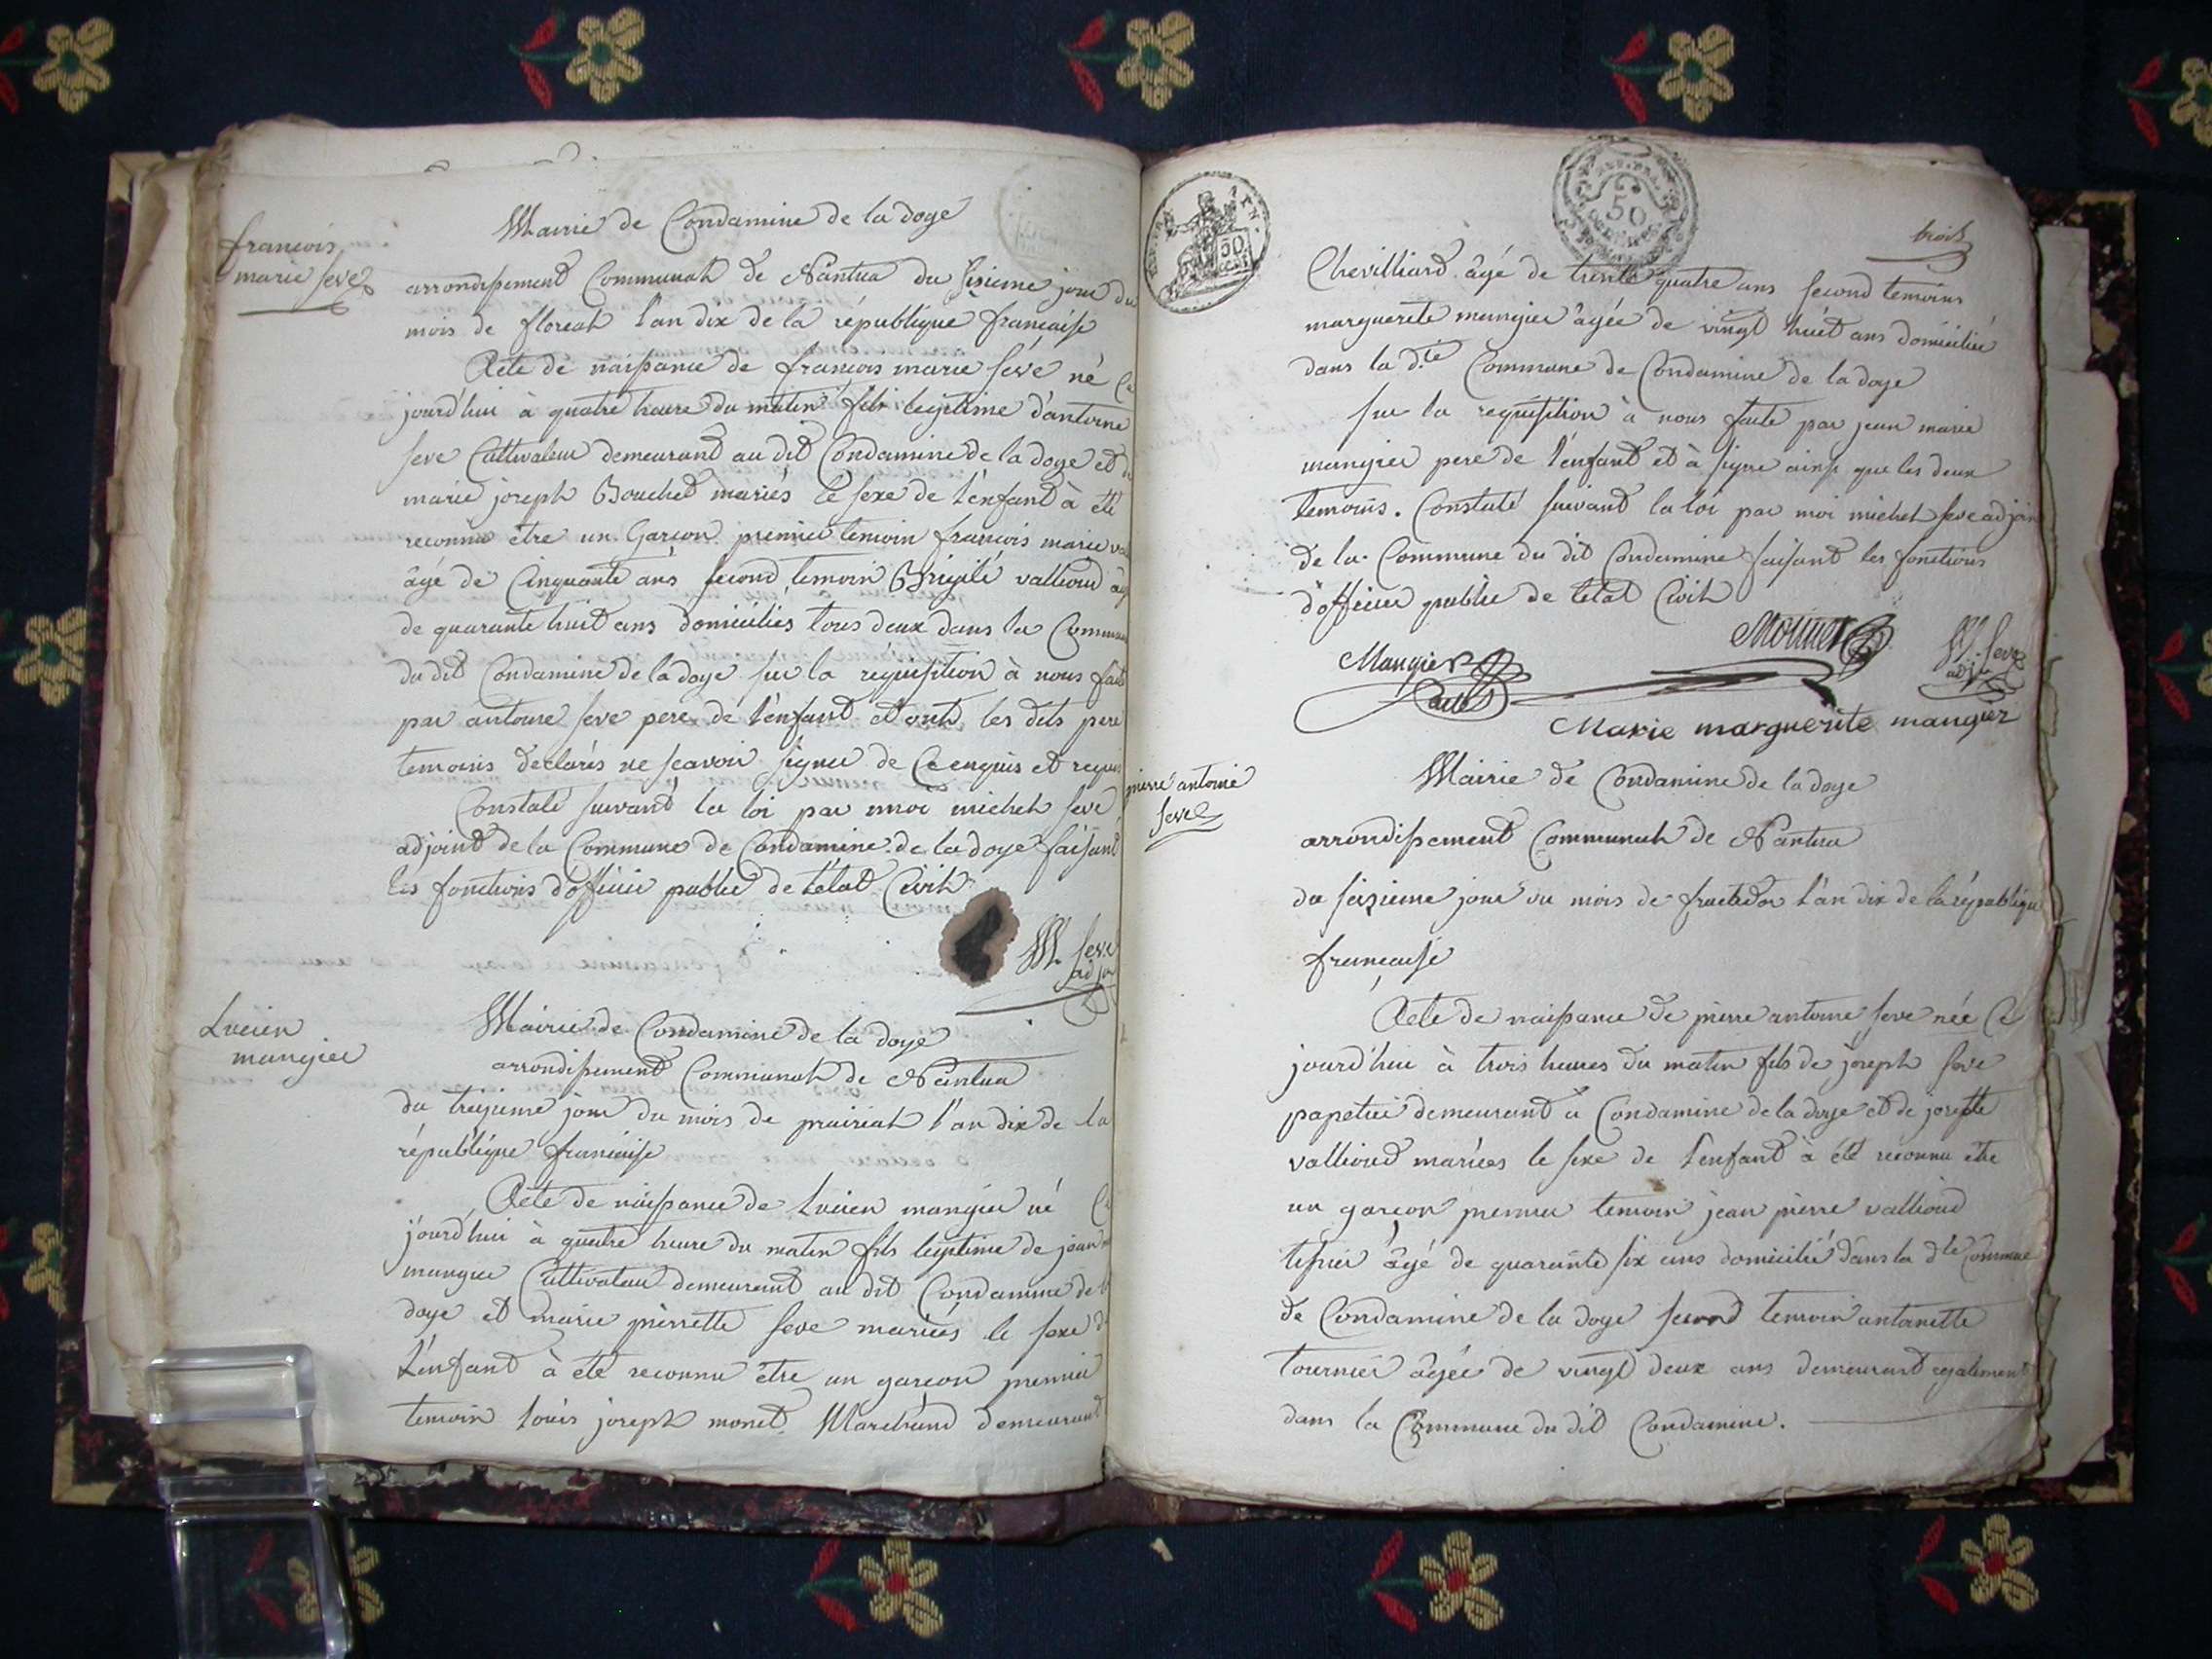 françois
marie seve
Mairie de Condamine de la doye
arrondissement Communal de Nantua du sixieme jour du
mois de floreal l'an dix de la république française
Acte de naissance de françois marie séve né Ce
jourd'hui à quatre heure du matin fils legitime d'antoine
seve Cultivateur demeurant au dit Condamine de la doye et de
marie joseph Bouchet mariés le sexe de l'enfant à été
reconnu être un Garçon premier temoin françois marie
âgé de Cinquante ans second temoin Brigite valliond
de quarante huit ans domiciliés tous deux dans la Commune
du dit Condamine de la doye sur la réquisition à nous faite
par antoine seve pere de l'enfant et ont les dits pere
temoins declarés ne sçavoir signer de Ce enquis et requis
Constaté suivant la loi par moi michel seve
adjoint de la Commune de Condamine de la doye faisant
les fonctions d'officier public de l'état Civil
M seve
adjoint
Lucien
mangier
Mairie de Condamine de la doye
arrondissement Communal de Nantua
du treizieme jour du mois de prairial l'an dix de la
république française
Acte de naissance de Lucien mangier né Ce
jourd'hui à quatre heure du matin fils legitime de jean
mangier Cultivateur demeurant au dit Condamine de la
doye et marie pierrette seve mariés le sexe de
l'enfant à été reconnu être un garcon premier
temoin Louis joseph monet Marchand demeurant
trois
50
50
Chevilliard âgé de trente quatre ans second temoins
marguerite mangier âgée de vingt huit ans domiciliée
dans la d.te Commune de Condamine de la doye
sur la requisition à nous faite par jean marie
mangier pere de l'enfant et à signe ainsi que les deux
temoins. Constaté suivant la loi par moi michel seve adjoint
de la Commune du dit Condamine faisant les fonctions
d'officier public de letat Civil
Mangier
M. Seve
adj
Marie marguerite mangier
pierre antoine
seve
Mairie de Condamine de la doye
arrondissement Communal de Nantua
du seizieme jour du mois de fructidor l'an dix de la république
française
Acte de naissance de pierre antoine seve née Ce
jourd'hui à trois heures du matin fils de joseph seve
papetier demeurant a Condamine de la doye et de josephte
valliond mariées le sexe de l'enfant à été reconnu être
un garçon premier temoin jean pierre valliond
tissier âgé de quarante six ans domicilié dans la dte Commune
de Condamine de la doye second temoin antoinette
tournier âgée de vingt deux ans demeurant egalement
dans la Commune du dit Condamine.